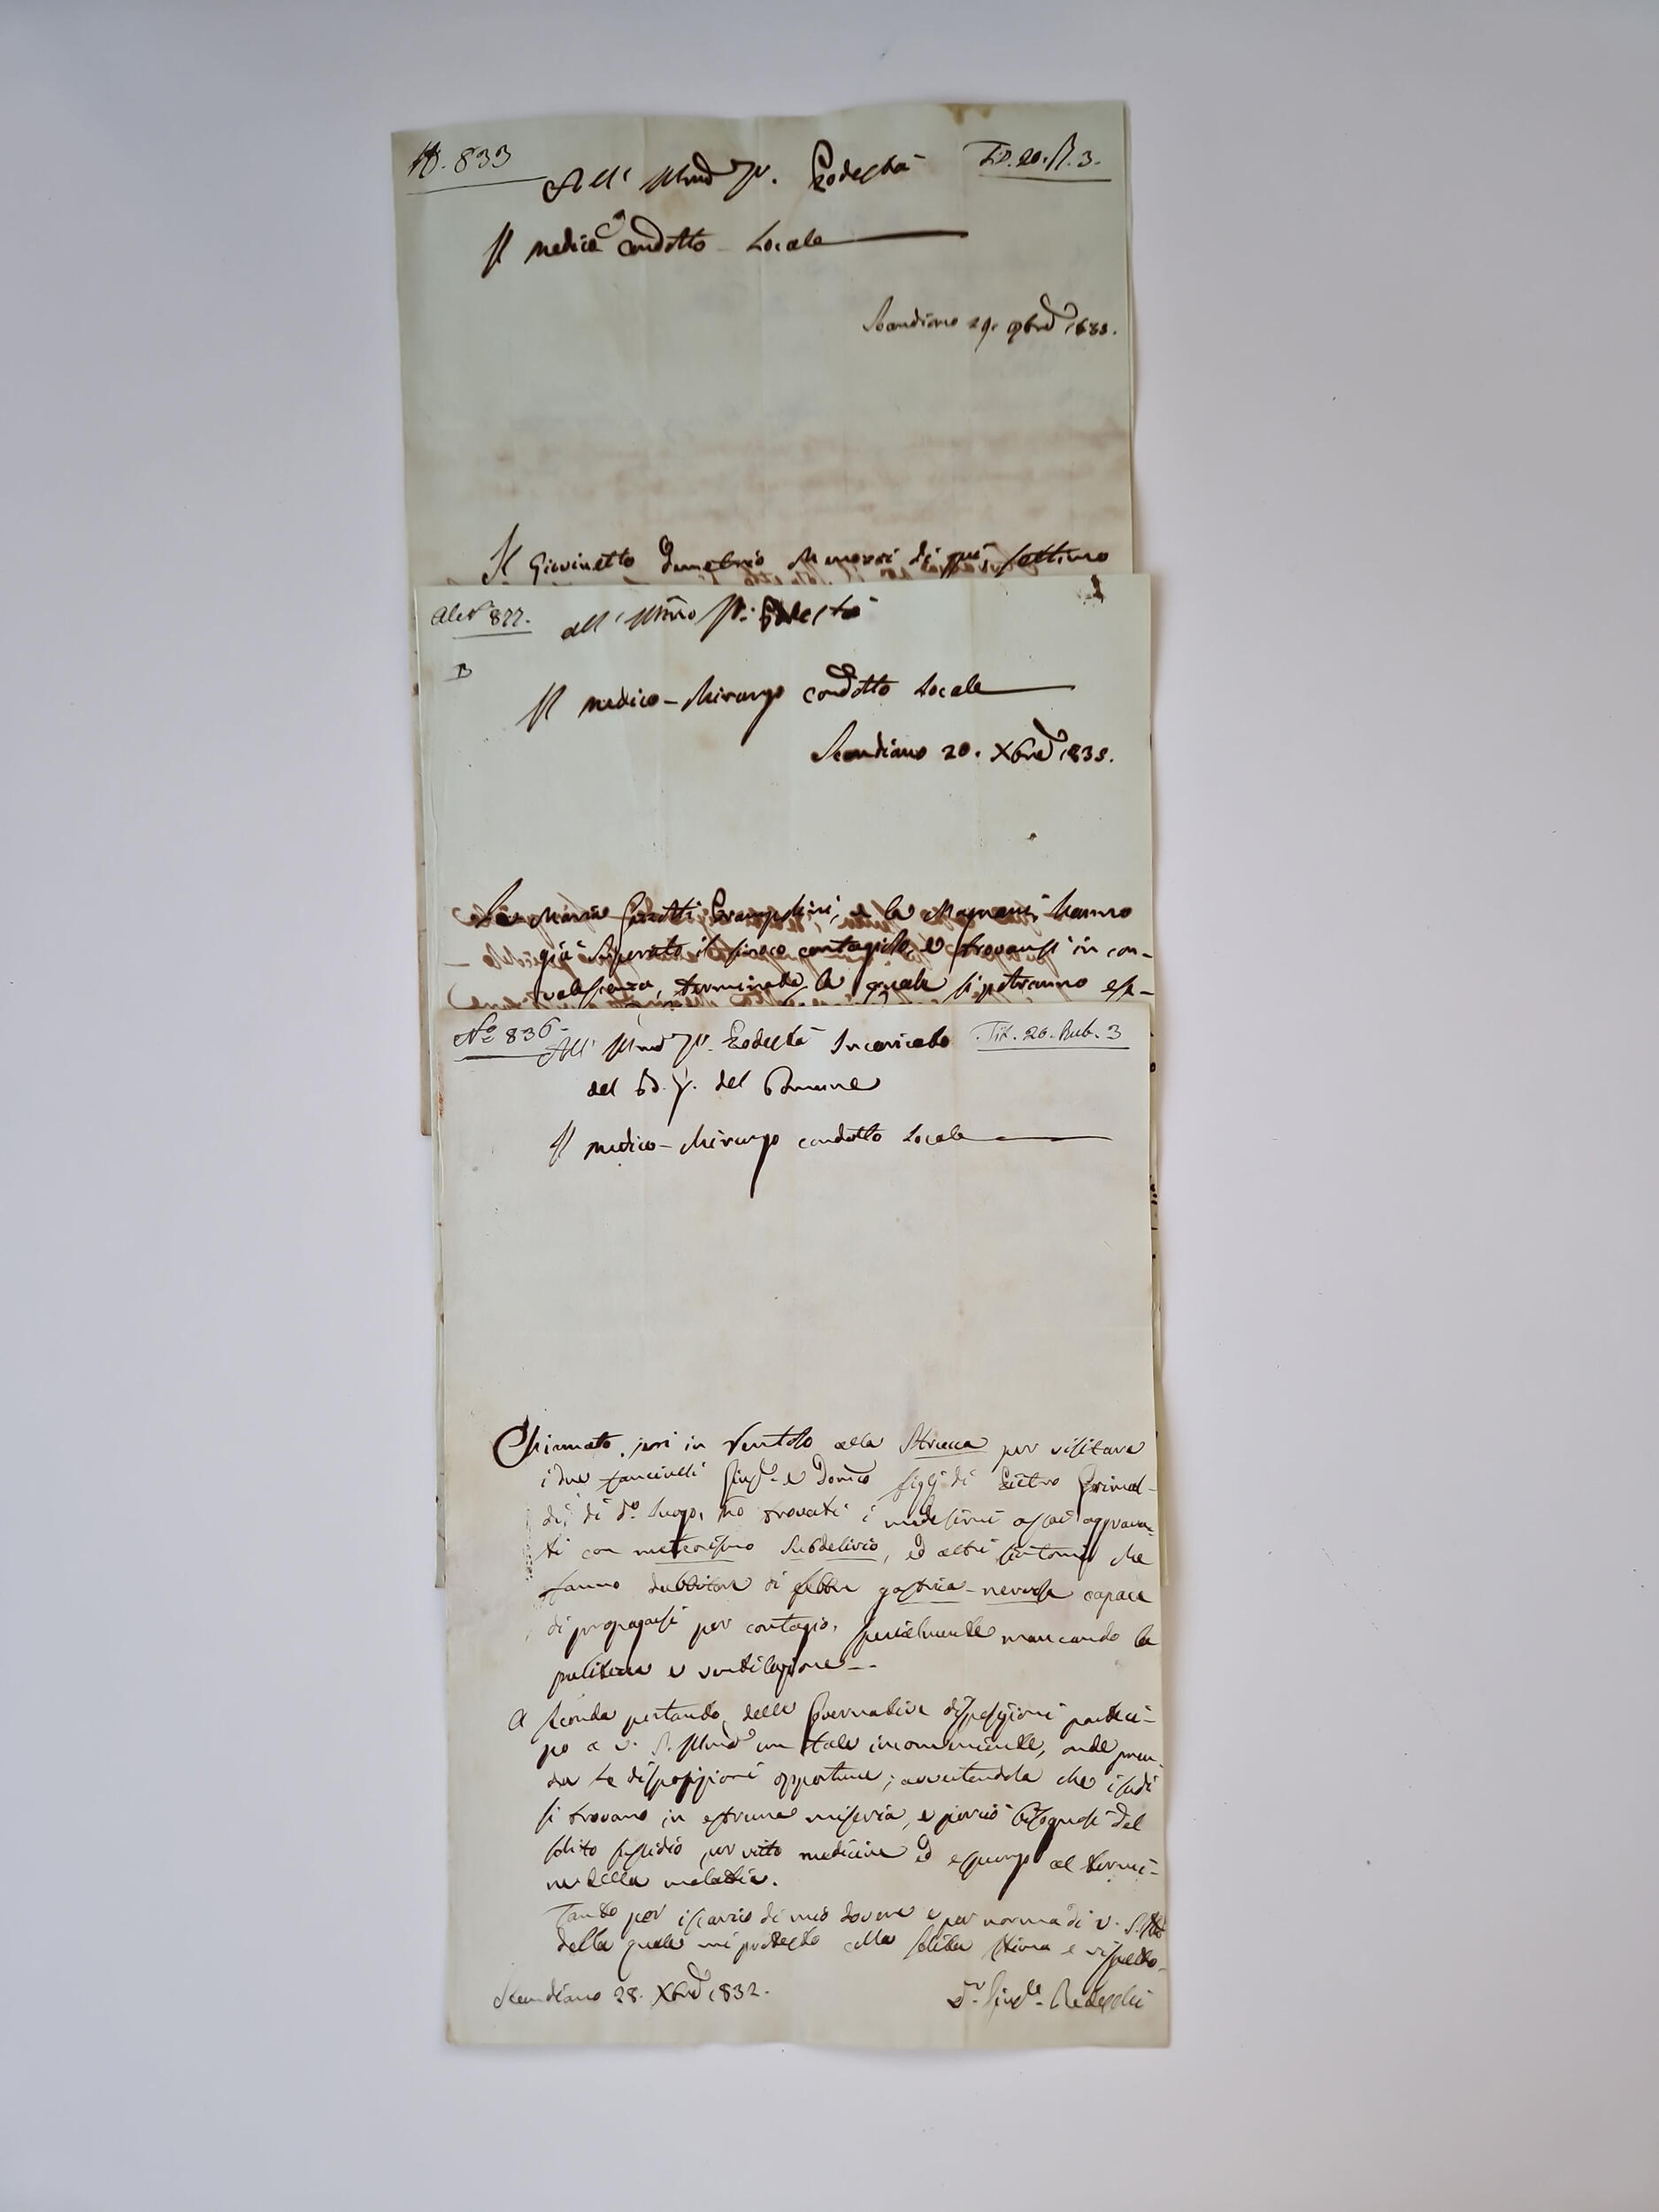 N. 833
Tit. 20. R. 3.
All' Illmo Sr. Podestà
Il medico condotto Locale
Scandiano 29. 9bre 1833.
Il Giovinetto Demetrio di qui, settimo
al N° 877.
all' Illmo Sr. Podestà
B
Il medico-chirurgo condotto Locale
Scandiano 20. Xbre 1833.
La Maria e la hanno
già superato il contagioso, e trovansi in con-
valescenza, terminata la quale si potranno esp-
N° 836-
Tit. 20. Rub. 3
All' Illmo Sr. Podestà Incaricato
del Bo. G. del Comune
Il medico-chirurgo condotto Locale
Chiamato jeri in Ventoso alla per visitare
i due fanciulli Giuse. e Domco figlj di Pietro Grimal-
di, di do. luogo, ho trovati i medesimi assai aggrava-
ti con meteorismo subdelirio, ed altri sintomi che
fanno dubbitare di febbre gastrica-nervosa capace
di propagarsi per contagio, specialmente mancando la
pulitezza e ventilazione-.
A seconda pertanto delle Governative disposizioni parteci-
po a V. S. Illma un tale inconveniente, onde pren-
da le disposizioni opportune; avvertendola che i sudi
si trovano in estrema miseria, e perciò bisognosi del
solito sussidio per vitto medicine ed espurgo al termi-
ne della malattia.
Tanto per iscarico di mio dovere e per norma di V. S. Illma
della quale mi protesto colla solita stima e rispetto-
Scandiano 28. Xbre 1832.
Dr. Giuse.